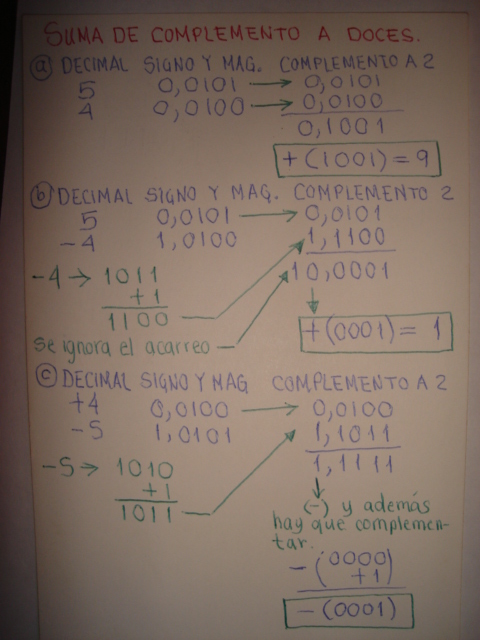 SUMA DE COMPLEMENTO A DOCES.
a DECIMAL SIGNO Y MAG. COMPLEMENTO A 2
5 0,0101 → 0,0101
4 0,0100 → 0,0100
0,1001
+(1001) = 9
b DECIMAL SIGNO Y MAG. COMPLEMENTO 2
5 0,0101 → 0,0101
-4 1,0100 1,1100
-4 → 1011 10,0001
+1
1100
+(0001) = 1
se ignora el acarreo
c DECIMAL SIGNO Y MAG COMPLEMENTO A 2
+4 0,0100 → 0,0100
-5 1,0101 1,1011
-5 → 1010 1,1111
+1
1011
(-) y además
hay que complemen-
tar.
-(0000)
+1)
-(0001)